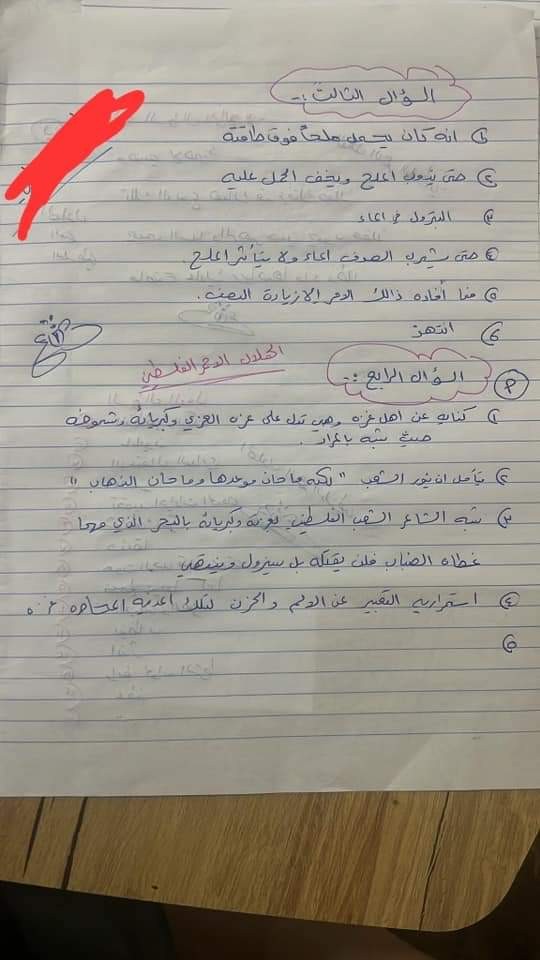 السؤال الثالث :-
① انه كان يحمل ملحاً فوق طاقته
② حتى يذوب الملح ويخف الحمل عليه
③ النزول في الماء
④ حتى يشرب الصوف الماء ولا يتأثر الملح.
⑤ فما أفاده ذالك الامر إلا زيادة
⑥
الهلال الاحمر الفلسطيني
السؤال الرابع :-
① كناية عن اهل غزه وهي تدل على عزه الغزي وكبريائه وشموخه
حيث شبه
② يأمل ان يثور الشعب " لكنه ما حان موعدها وما حان الذهاب "
③ شبه الشاعر الشعب الفلسطيني بعزته وكبريائه بالبحر الذي مهما
غطاه الضباب فلن يقتله بل سيزول وينتهي
④ استمراريه التعبير عن الالم والحزن لتلك المدنة المحاصره غزه
⑤